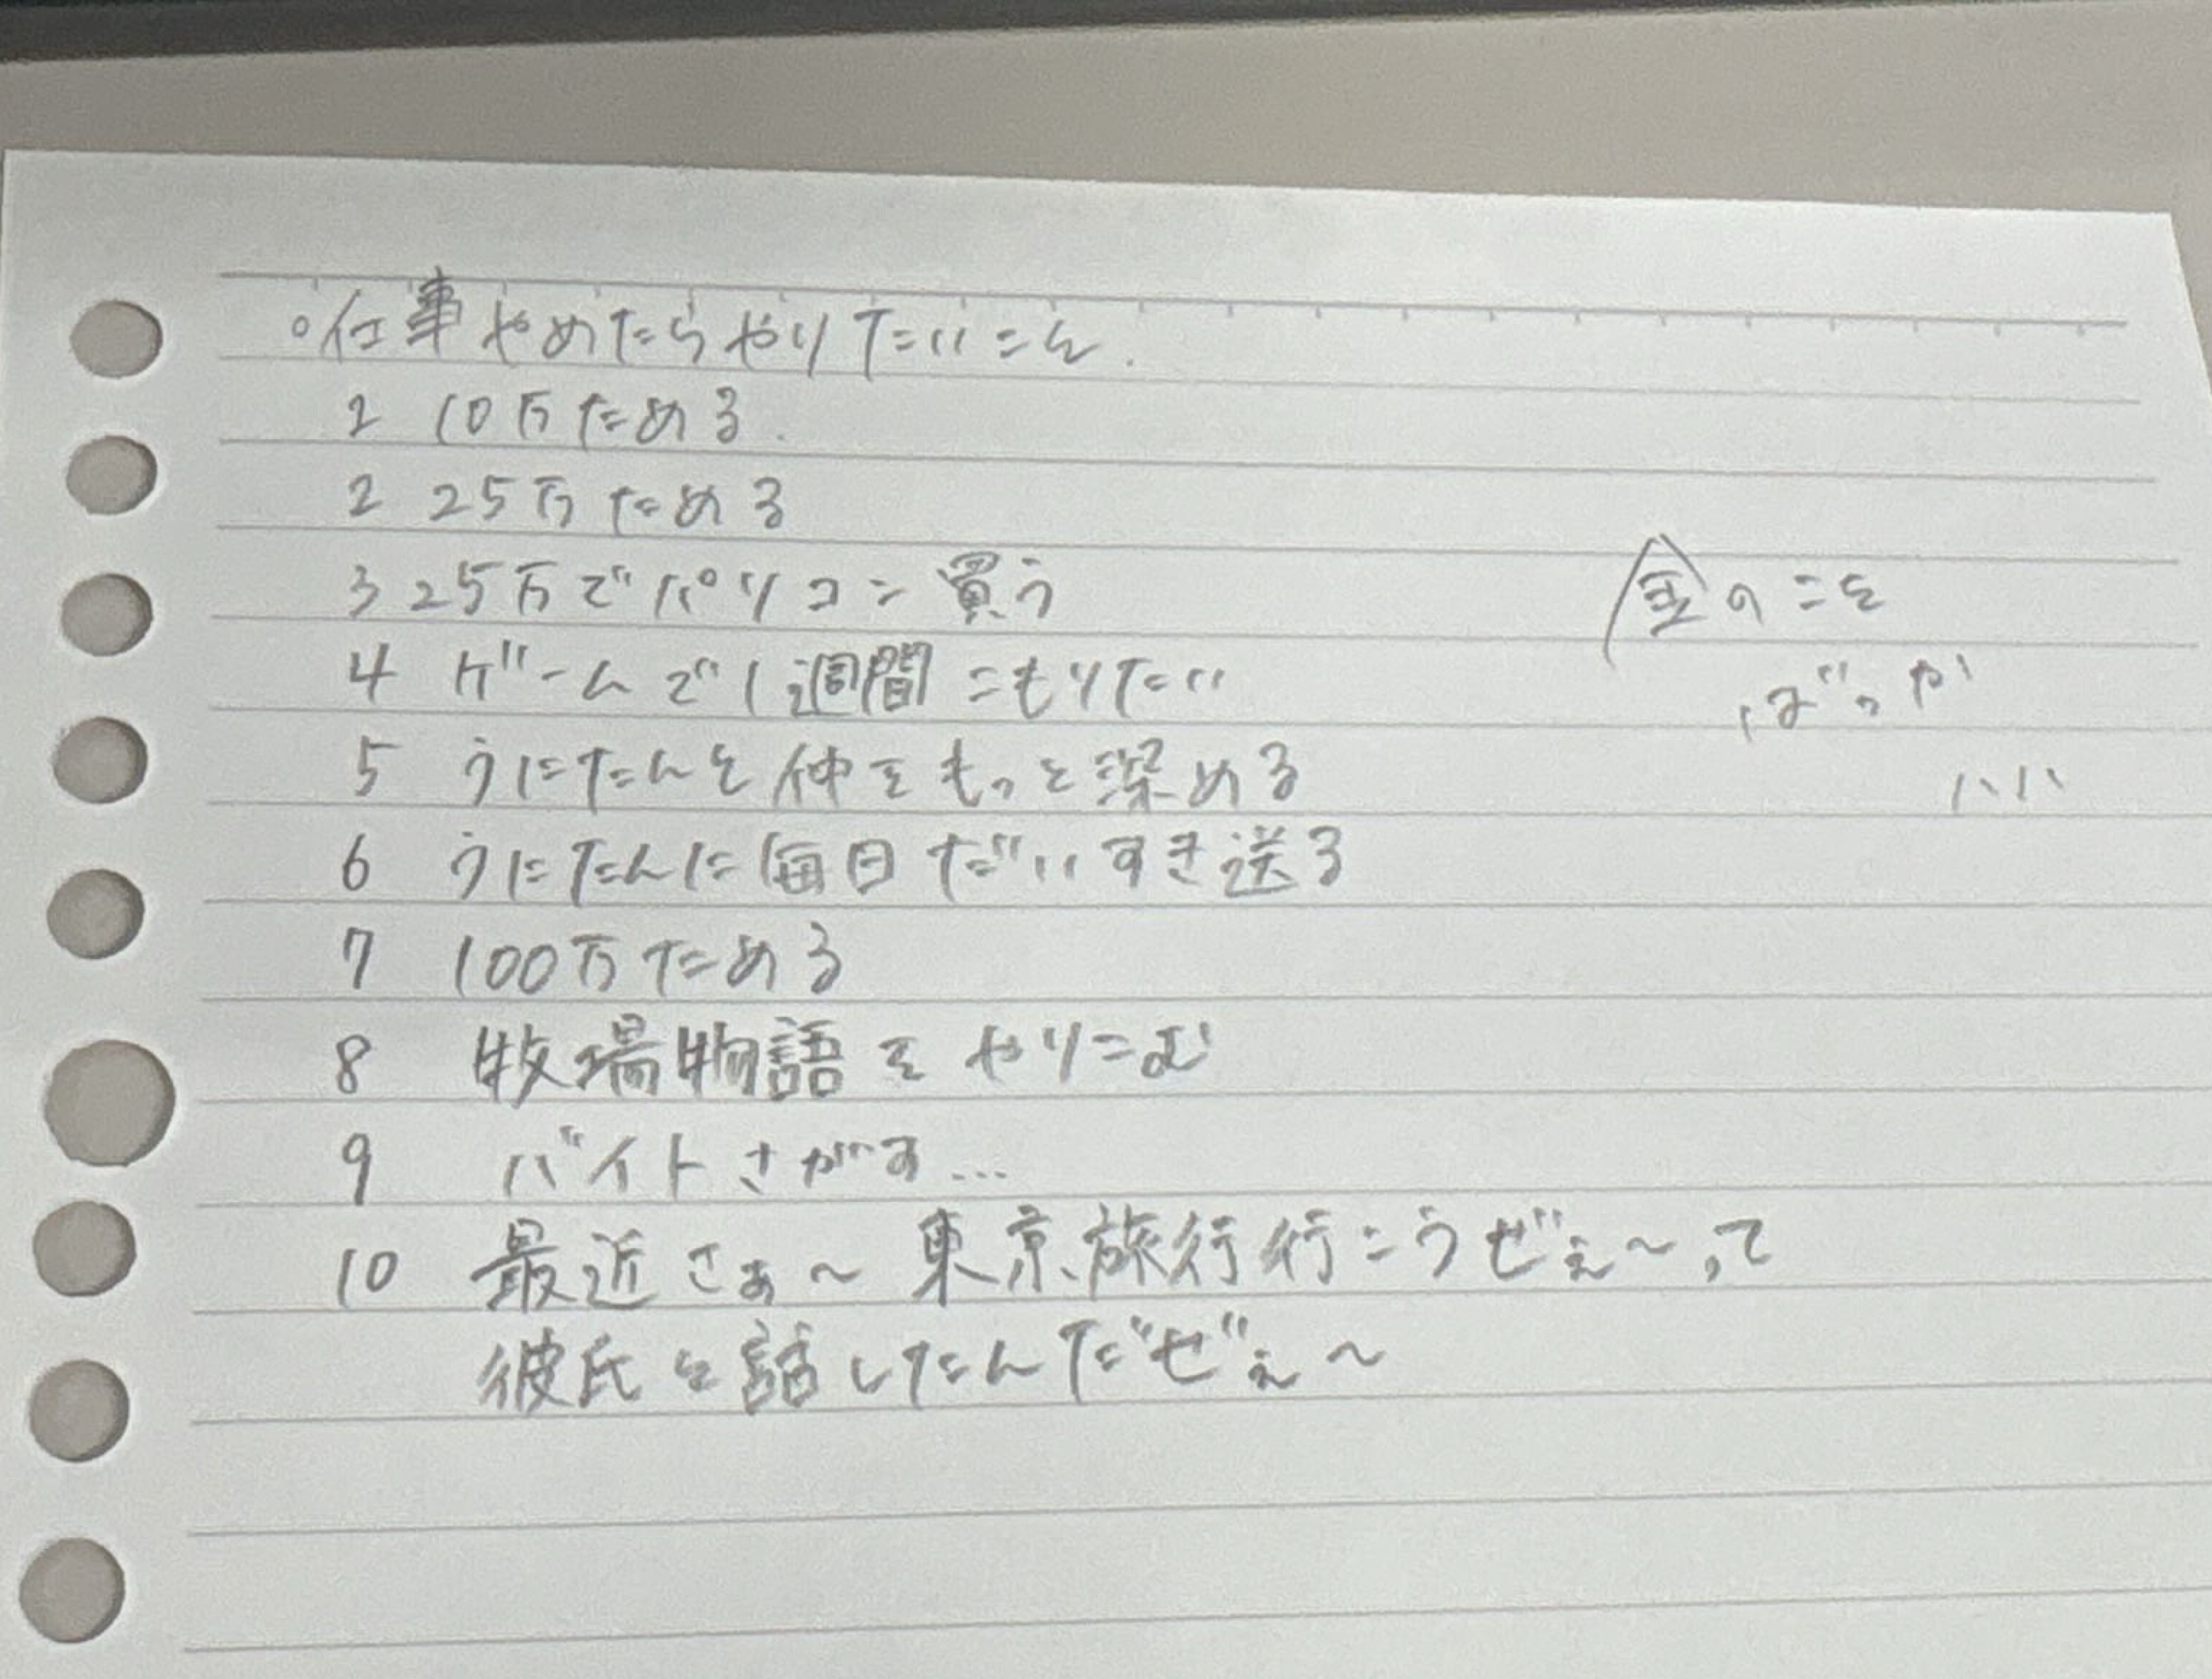 。仕事やめたらやりたいこと.
2 10万ためる.
2 25万ためる
3 25万でパソコン買う
4 ゲームで1週間こもりたい
5 うにたんと仲をもっと深める
6 うにたんに毎日だいすき送る
7 100万ためる
8 牧場物語をやりこむ
9 バイトさがす...
10 最近さぁ～東京旅行行こうぜぇ～って
彼氏と話したんだぜぇ～
金のこと
ばっか
ハハ